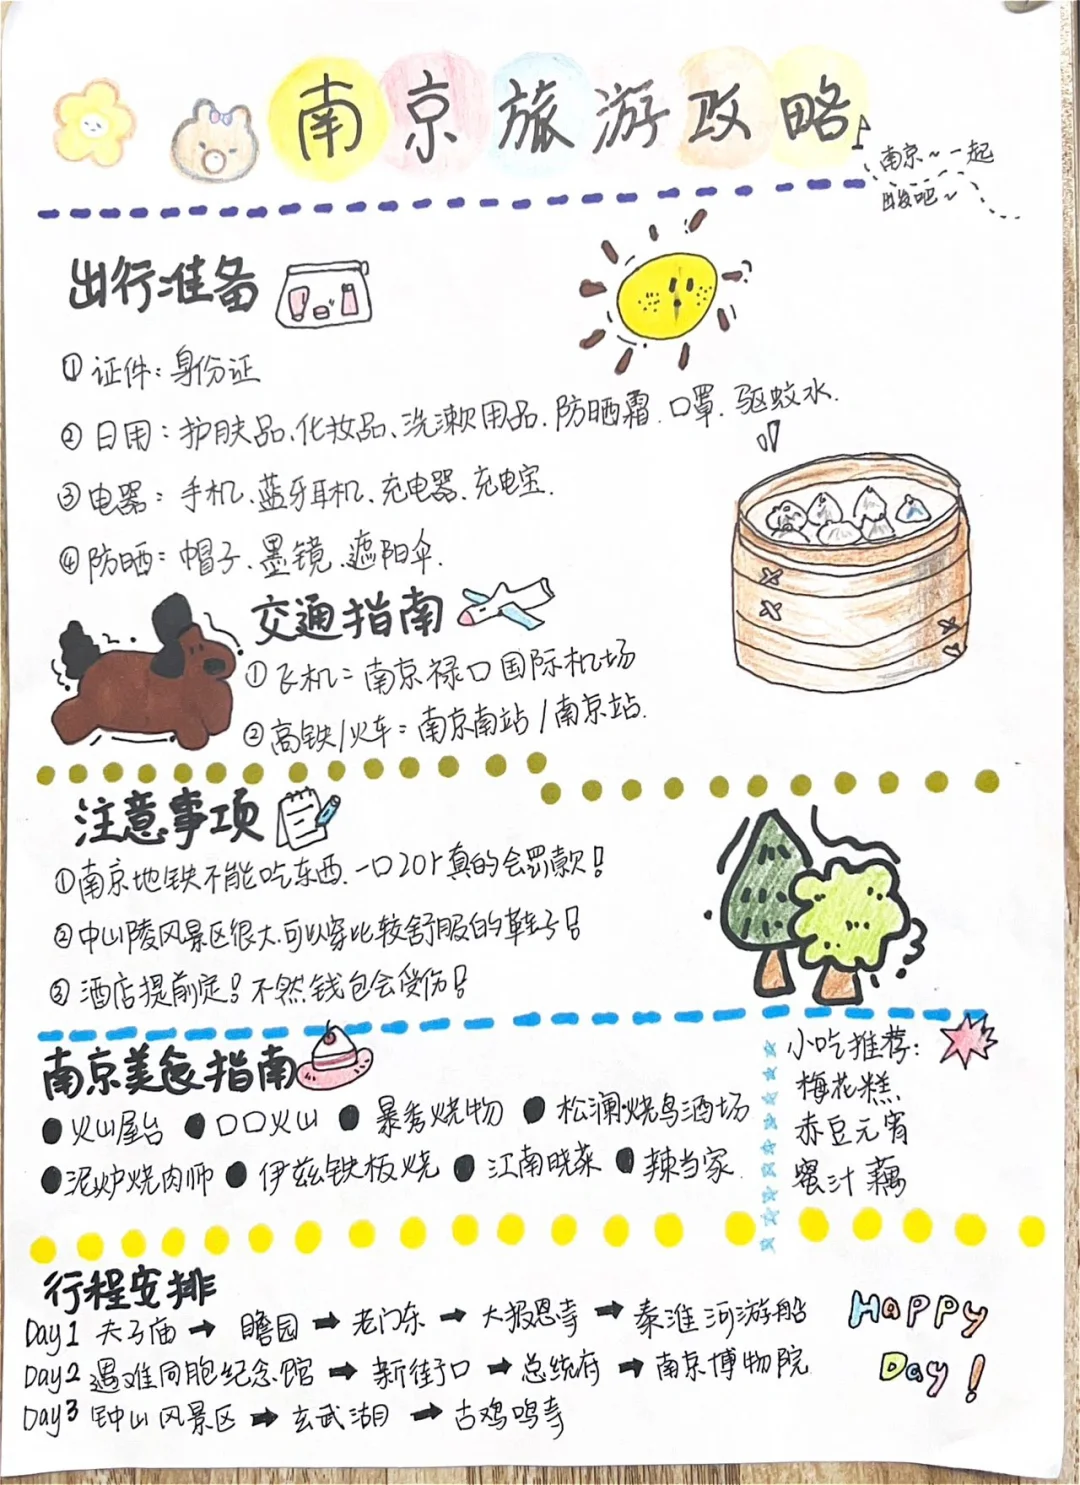 南京旅游攻略
南京~一起
出发吧~
出行准备
①证件:身份证
②日用:护肤品、化妆品、洗漱用品.防晒霜.口罩.驱蚊水.
③电器:手机、蓝牙耳机、充电器、充电宝.
④防晒:帽子、墨镜、遮阳伞.
交通指南
①飞机:南京禄口国际机场
②高铁/火车:南京南站/南京站.
注意事项
①南京地铁不能吃东西.一口20!真的会罚款!
②中山陵风景区很大.可以穿比较舒服的鞋子!
③酒店提前定!不然钱包会受伤!
南京美食指南
●火山屋台 ●口口火山 ●暴秀烧物 ●松澜·烧鸟酒场
●泥炉烧肉师 ●伊兹铁板烧 ●江南晓菜 ●辣当家
小吃推荐:
梅花糕
赤豆元宵
蜜汁藕
行程安排
Day1 夫子庙→瞻园→老门东→大报恩寺→秦淮河游船
Day2 遇难同胞纪念馆→新街口→总统府→南京博物院
Day3 钟山风景区→玄武湖→古鸡鸣寺
HAPPY
Day!